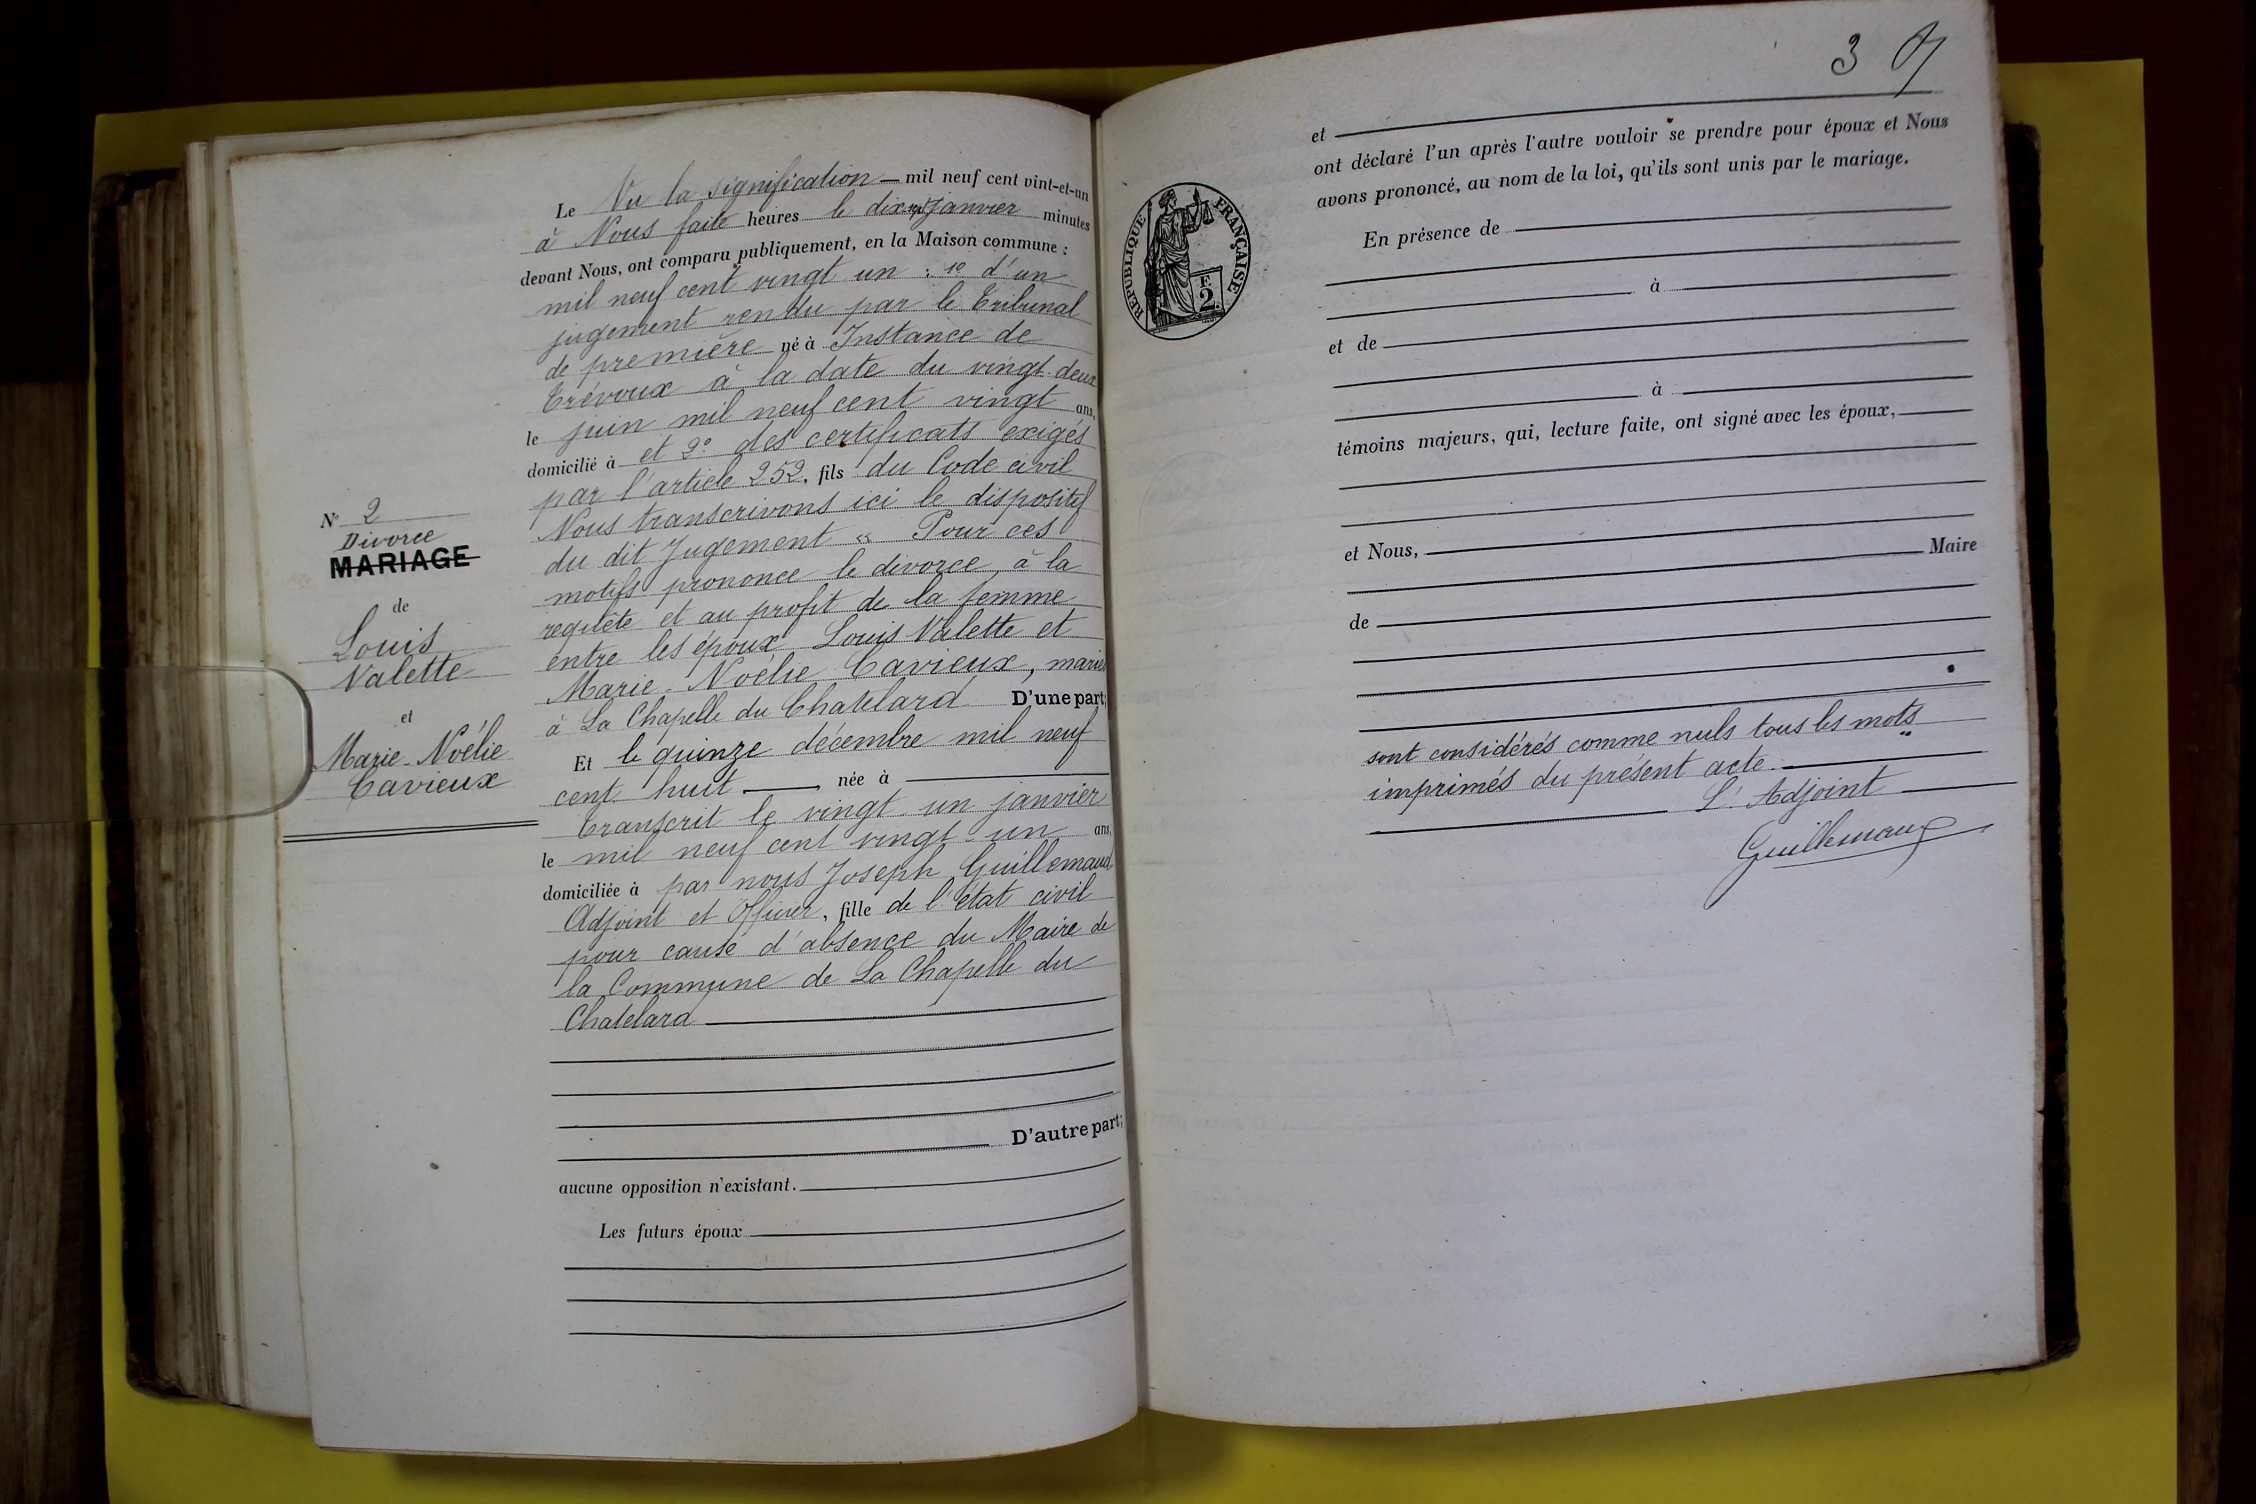 Le Vu la signification — mil neuf cent vint-et-un
à Nous faite heures le dix janvier minutes
devant Nous, ont comparu publiquement, en la Maison commune :
mil neuf cent vingt un : 1º d'un
jugement rendu par le Tribunal
de première né à Instance de
Trévoux à la date du vingt-deux
le juin mil neuf cent vingt ans,
domicilié à et 2º des certificats exigés
par l'article 252, fils du Code civil
Nous transcrivons ici le dispositif
du dit Jugement « Pour ces
motifs prononce le divorce à la
requête et au profit de la femme
entre les époux Louis Valette et
Marie-Noélie Cavieux, mariés
à La Chapelle du Chatelard D'une part;
Et le quinze décembre mil neuf
cent huit —, née à
Transcrit le vingt-un janvier
le mil neuf cent vingt-un ans,
domiciliée à par nous Joseph Guillemaud
Adjoint et Officier, fille de l'état civil
pour cause d'absence du Maire de
la Commune de La Chapelle du
Chatelard
D'autre part;
aucune opposition n'existant.
Les futurs époux
Nº 2
Divorce
MARIAGE
de
Louis
Valette
et
Marie-Noélie
Cavieux
3
et
ont déclaré l'un après l'autre vouloir se prendre pour époux et Nous
avons prononcé, au nom de la loi, qu'ils sont unis par le mariage.
RÉPUBLIQUE FRANÇAISE
F.
2
En présence de
à
et de
à
témoins majeurs, qui, lecture faite, ont signé avec les époux,
et Nous,
Maire
de
sont considérés comme nuls tous les mots
imprimés du présent acte.
L'Adjoint
Guillemaud